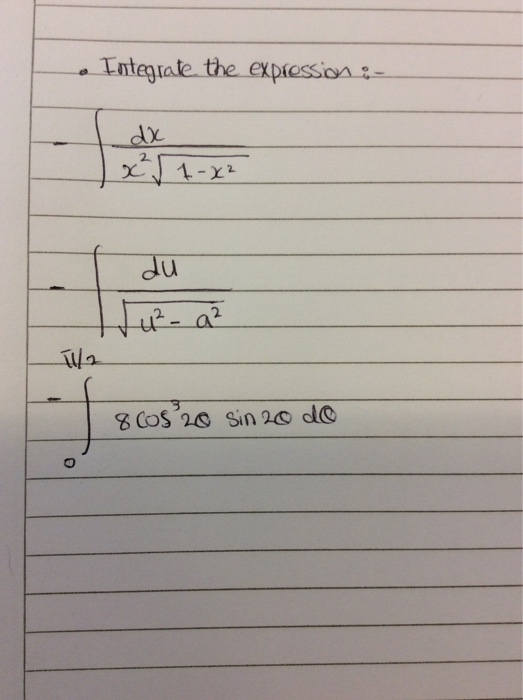 • Integrate the expression :-
- ∫ dx / x² √1-x²
- ∫ du / √u² - a²
- ∫₀^π/2 8 cos³ 2θ sin 2θ dθ